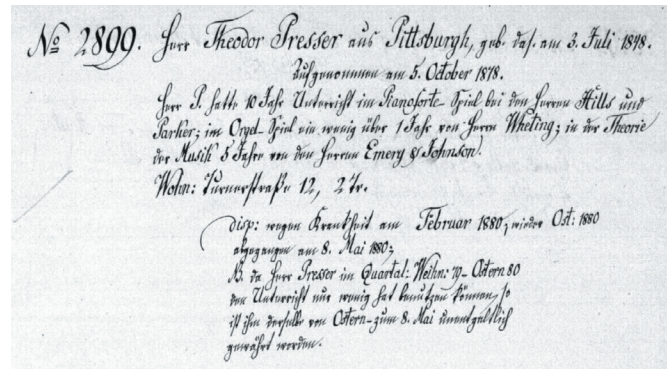 № 2899. Herr Theodor Presser aus Pittsburgh, geb. das. am 3. Juli 1848.
Aufgenommen am 5. October 1878.
Herr P. hatte 10 Jahr Unterricht im Pianoforte-Spiel bei den Herren Hills und
Parker; im Orgel-Spiel ein wenig über 1 Jahr von Herrn Wheting; in der Theorie
der Musik 5 Jahre von den Herren Emery & Johnson.
Wohn: Turnerstraße 12, 2 Tr.
disp: wegen Krankheit am Februar 1880, wieder Ost: 1880
abgegangen am 8. Mai 1880;
NB. da Herr Presser im Quartal: Weihn: 79-Ostern 80
den Unterricht nur wenig hat benutzen können, so
ist ihm derselbe von Ostern-zum 8. Mai unentgeltlich
gewährt worden.